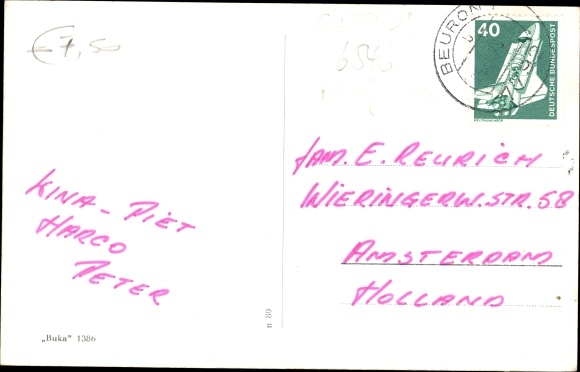 € 7,50
6545
BEURON
40
DEUTSCHE BUNDESPOST
WELTRAUMLABOR
KINA - PIET
HARCO
PETER
FAM. E. REURICH
WIERINGERW.STR. 58
AMSTERDAM
HOLLAND
n 80
„Buka" 1386